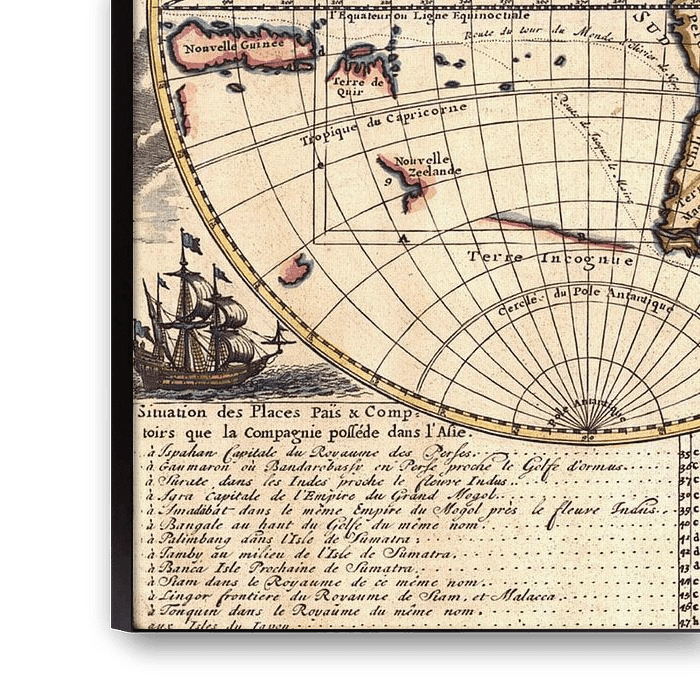 l'Equateur ou Ligne Equinoctiale
SUD
Route du tour du Monde
Nouvelle Guinée
Terre de
Quir
Tropique du Capricorne
Route de Jacques le Maire
Nouvelle
Zeelande
9
A
B
Terre Incognue
Cercle du Pole Antarctique
Pole Antarctique
Situation des Places Païs & Comp-
toirs que la Compagnie posséde dans l'Asie
à Ispahan Capitale du Royaume des Perses.
à Gaumaron où Bandarobassy en Perse proche le Golfe d'ormus
à Surate dans les Indes proche le fleuve Indus
à Agra Capitale de l'Empire du Grand Mogol
à Amadabat dans le même Empire du Mogol près le fleuve Indus
à Bangale au haut du Golfe du même nom
à Palimbang dans l'Isle de Sumatra
à Jamby au milieu de l'Isle de Sumatra.
à Banca Isle Prochaine de Sumatra
à Siam dans le Royaume de ce même nom
à Lingor frontiere du Royaume de Siam, et Malacca
à Tonquin dans le Royaume du même nom
aux Isles du Japon